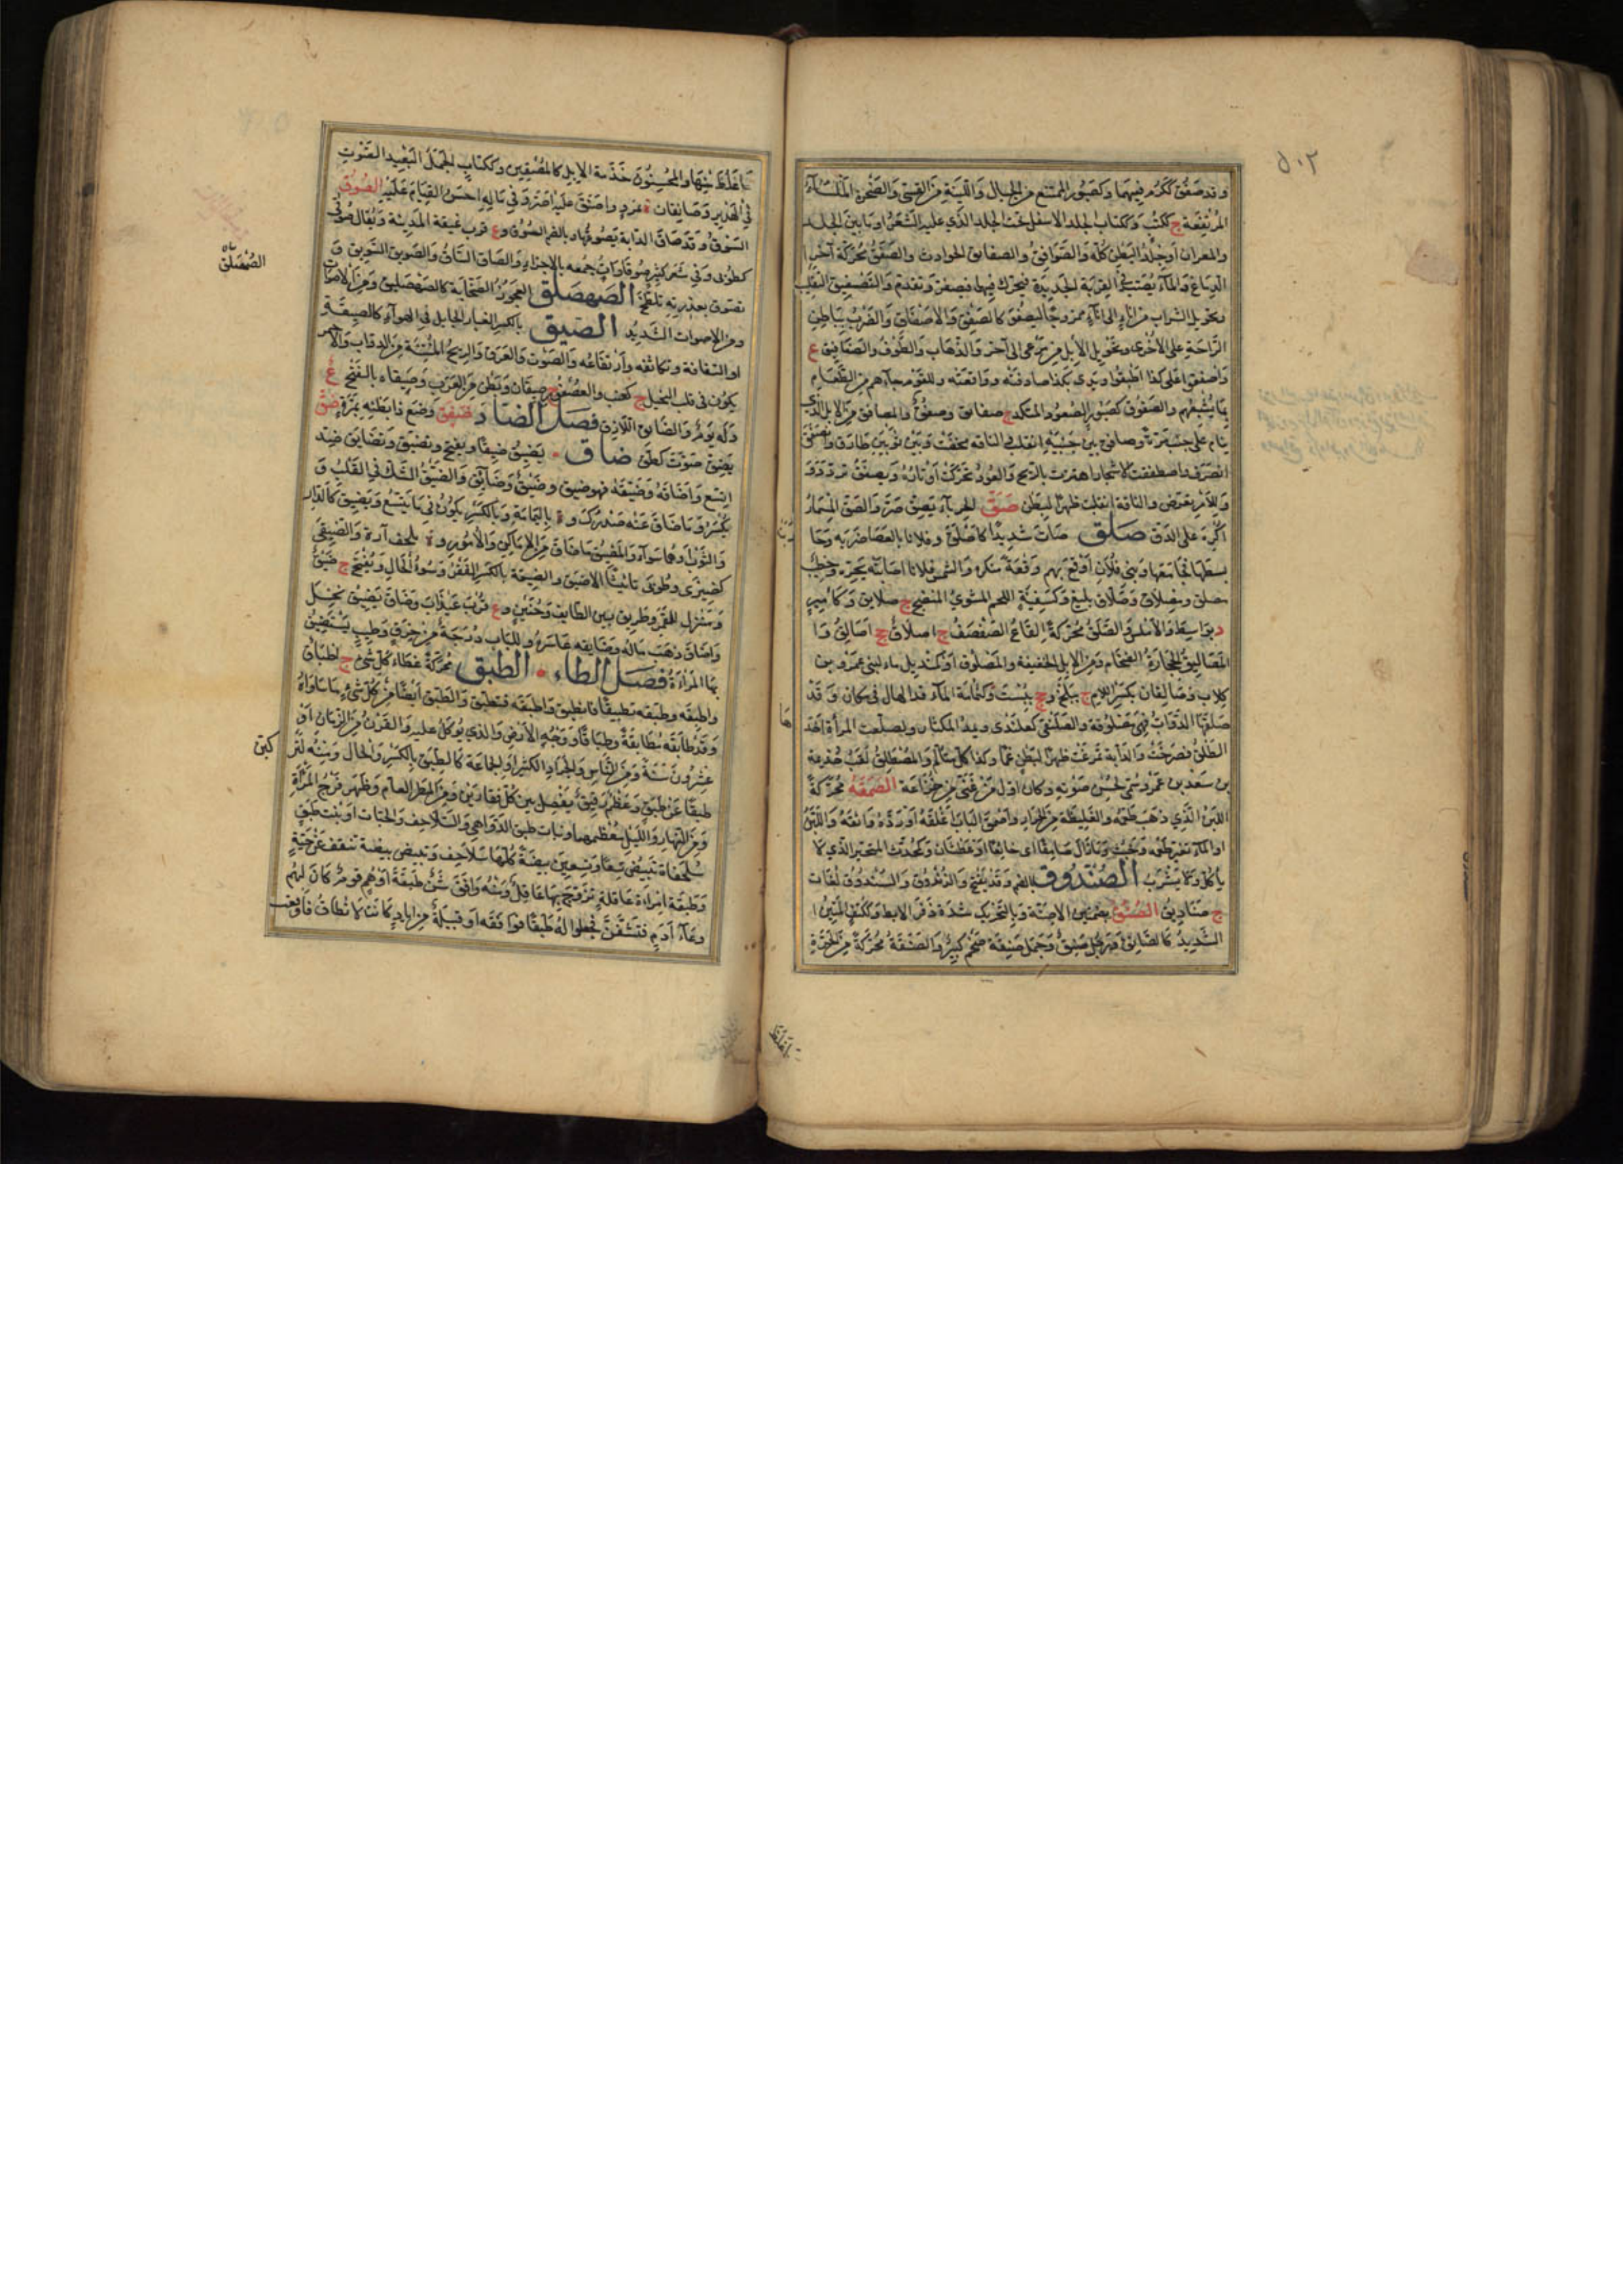 ٥٠٢
وقد صَفُقَ ككَرُم فيهما وكصَبُور الممتنع من الجبال واللَّيِّنة من القِسِيّ والصخرة الملساء
المرتفعة ج ككتب وككتاب الجلد الاسفل تحت الجلد الذي عليه الشعر او ما بين الجلد
والمصران او جلد البطن كله والصوافق والصفائق الحوادث والصفق محركة آخر
الدباغ والماء يصب في القربة الجديدة فيحرك فيها فيصفر وتقدم والتصفيق التقليب
وتحويل الشراب من اناء الى اناء ممزوجا ليصفو كالصفق والاصفاق والضرب بباطن
الراحة على الاخرى وتحويل الابل من مرعى الى آخر والذهاب والطوف والصفافيق ع
واصفقوا على كذا اطبقوا ويدي بكذا صادفته ووافقته وللقوم جاءهم من الطعام
بما يشبعهم والصفوق كصبور الصعود المنكرة ج صفائق وصفق والمصافق من الابل الذي
ينام على جنب مرة وصافق بين جنبيه انقلب والناقة مخضت وبين ثوبين طارق وانصفق
انصرف واصطفقت الاشجار اهتزت بالريح والعود تحركت اوتاره وتصفق تردد و
وللامر تعرض والناقة انقلبت ظهرا لبطن صَقَّ الحرباء يصق صر والصق المسمار
اكره على الدق صلق صات شديدا كاصلق وفلانا بالعصا ضربه وجا
بسطها فجامعها وبني فلان اوقع بهم وقعة منكرة والشمس فلانا اصابته بحره وخطيب
مصلق ومصلاق وصلاق بليغ وكسفينة اللحم المشوي المنضج ج صلائق وكامير
د بواسط والاملس والصلق محركة القاع الصفصف ج اصلاق جج اصاليق وا
المصاليق الحجارة الضخام ومن الابل الخفيفة والمصلوق او كنديل ماء لبني عمرو بن
كلاب وصالقان بكسر اللام ج ببلخ وج ببست وكثمامة الماء قد اطال في مكان وقد
صلقها الدواب فهي مصلوقة والصلنقى كعلندى ويمد المكثار وتصلقت المرأة اخذ
الطلق فصرخت والدابة تمرغت ظهرا لبطن غما وكذا كل متألم والمصطلق لقب جذيمة
بن سعد بن عمرو سمي لحسن صوته وكان اول من غنى من خزاعة الصمقة محركة
اللبن الذي ذهب طعمه والغليظة من الحرار واصمق الباب اغلقه او رده وافقه واللبن
او الماء تغير طعمه وخبث وما زال صامقا اي خائفا او عطشان وكمحدث المتحير الذي لا
ياكل ولا يشرب الصندوق بالضم وقد يفتح والزندوق والسندوق لغات
ج صناديق الصنق بضمتين الاصنة وبالتحريك شدة ذفر الابط وككتف المتين ا
الشديد كالصانق ورجل صنق وجمل صنقة ضخم كبير والصنقة محركة من الحرة
ما غلظ منها والمحسنون خدمة الابل كالمصنقين وككتاب الجمل البعيد الصوت
في الهدير وصانقان ة بمرو واصنق عليه اصر وفي ماله احسن القيام عليه الصوق
السوق وقد صاق الدابة يصوقها وبالضم السوق وع قرب غيقة المدينة ويقال صوقى
كطوبى وفي شعر كثير صوقاوات جمعه بالاجزاء والصاق الساق والصويق السويق و
تصوق بعذرته تلطخ الصهصلق العجوز الصخابة كالصهصليق ومن الاصوات
ومن الاصوات الشديد الصيق بالكسر الغبار الجائل في الهواء كالصيقة
او التفافه وتكاثفه وارتفاعه والصوت والعرق والريح المنتنة من الدواب والاحمر
يكون في قلب النخيل ج كعنب والعصفور ج صيقان وبطن من العرب وصيقاء بالفتح ع
وله يوم والصائق اللازق فصل الضاد ضفق وضع ذا بطنه بمرة ضق
يضق صوت كطق ضاق يضيق ضيقا ويفتح وتضيق وتضايق ضد
اتسع واضاقه وضيقه فهو ضيق وضيق وضائق والضيق الشك في القلب و
يكسر وما ضاق عنه صدرك وة باليمامة وبالكسر يكون فيما يتسع ويضيق كالدار
والثوب او هما سواء والمضيق ما ضاق من الاماكن والامور وة بلحف آرة والضيقى
كضيزى وطوبى تانيث الاضيق والضيقة بالكسر الفقر وسوء الحال ويفتح ج ضيق
ومنزل للقمر وطريق بين الطائف وحنين وع قرب عيذاب وضاق يضيق بخل
واضاق ذهب ماله وضايقه عاسره وللباب درجة من خزق وطيب يستضيق
بها المرأة فصل الطاء الطبق محركة غطاء كل شيء ج اطباق
واطبقه وطبقه تطبيقا فانطبق واطبقه فتطبق والطبق ايضا من كل شيء ما ساواه
وقد طابقه مطابقة وطباقا ووجه الارض والذي يؤكل عليه والقرن من الزمان او
عشرون سنة ومن الناس والجراد الكثير او الجماعة كالطبق بالكسر والحال ومنه لتر
طبقا عن طبق وعظم رقيق يفصل بين كل فقارين ومن المطر العام وظهر فرج المرأة
ومن النهار والليل معظمهما وبنات طبق الدواهي والسلاحف والحيات او بنت طبق
سلحفاة تبيض تسعا وتسعين بيضة كلها سلاحف وتبيض بيضة تنقف عن حية
وطبقة امرأة عاقلة تزوج بها عاقل ومنه وافق شن طبقة او هم قوم كان لهم
وعاء ادم فتشنن فجعلوا له طبقا فوافقه او قبيلة من اياد كانت لا تطاق فاوقعت
الصهصلق
كبن